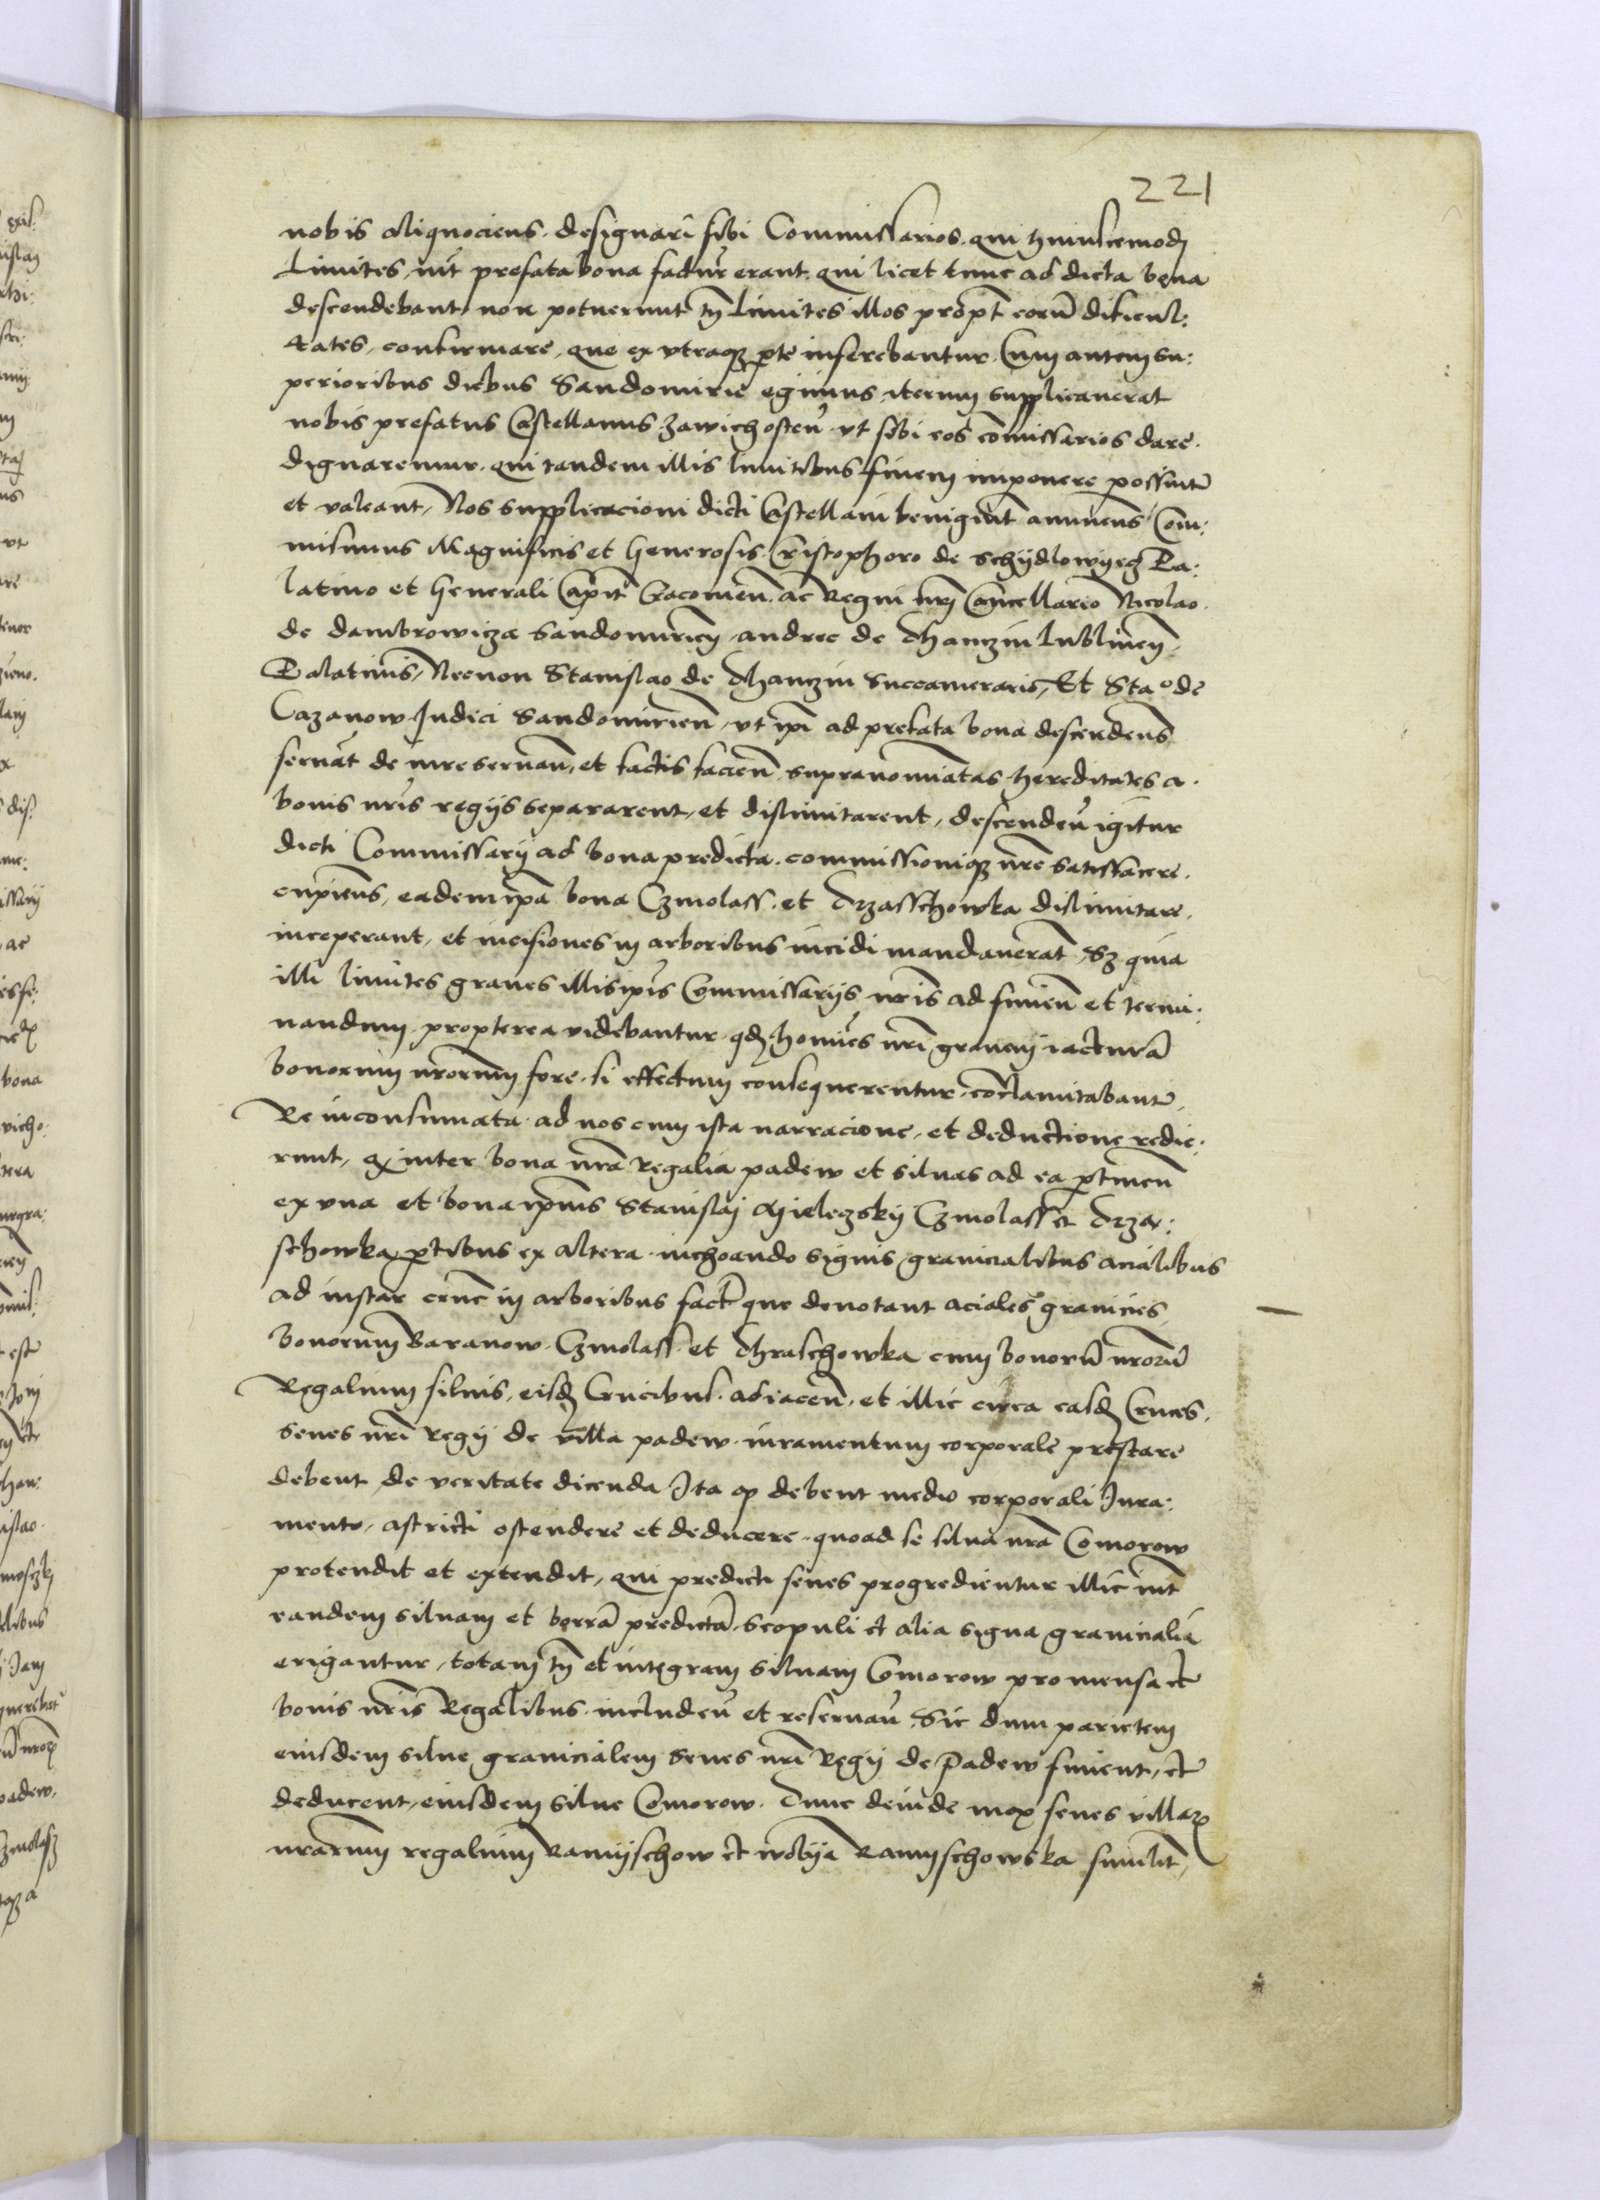 221
nobis aliquociens designari sibi Commissarios qui huiuscemodi
Limites int prefata bona factur erant qui licet tunc ad dicta bona
descendebant non potuerunt tn Limites illos propt eoru dificul:
tates, confirmare, que ex vtraque pte inserebantur Cum autem su:
perioribus diebus Sandomirie egimus iterum supplicauerat
nobis prefatus Castellanus Zawichosten vt sibi eos comissarios dare
dignaremur qui tandem illis limitibus finem imponere possint
et valeant, Nos supplicacioni dicti Castellani benignit annuens Com:
misimus Magnificis et Generosis Cristophoro de Schydlowyecz Pa:
latino et Generali Capit Cracouien ac Regni nri Cancellario Nicolao
de dambrowicza Sandomirien andree de Thanczin lublinen
Palatinis, Necnon Stanislao de Thanczin Succamerario, Et Stao de
Cazanow Judici Sandomirien vt ipi ad prefata bona descendens
seruat de iure seruan, et factis facien supranominatas hereditates a
bonis nris regijs separarent, et dislimitarent, descenden igitur
dicti Commissarij ad bona predicta commissionique nre satisfacere
cupiens, eadem ipa bona Czmolass et Trzasschowka dislimitare
inceperant, et incisiones in arboribus incidi mandauerat Sz quia
illi limites graues illis ipis Commissarijs nris ad finien et termi:
nandum propterea videbantur qd homies nri grauem iactura
bonorum nrorum fore si effectum consequerentur conclamitabant
Re inconsumata ad nos cum ista narracione et deductione redie:
runt, q inter bona nra Regalia padew et siluas ad ea ptinen
ex vna et bona ipius Stanislai Mieleczsky Czmolass et Trza:
schowka ptibus ex altera inchoando signis granicialibus acialibus
ad instar cruc in arboribus fact que denotant aciales granicies
bonorum Baranow Czmolass et Thraschowka cum bonoru nroru
Regalium siluis eisd Crucibus adiacen et illic circa easd Cruces
senes nri Regij de villa padew iuramentum corporale prestare
debent de veritate dicenda Ita q debent medio corporali Iura:
mento astricti ostendere et deducere quoad se silua nra Comorow
protendit et extendit, qui predicti senes progredientur illic int
eandem siluam et borra predicta scopuli et alia signa granicialia
erigantur, totam tn et integram siluam Comorow pro mensa et
bonis nris Regalibus includen et reseruan Sic dum parietem
eiusdem silue granicialem senes nri Regij de Padew finient, et
deducent, eiusdem silue Comorow Tunc deinde mox senes villar
nrarum regalium Ramyschow et wolya Ramyschowska similit